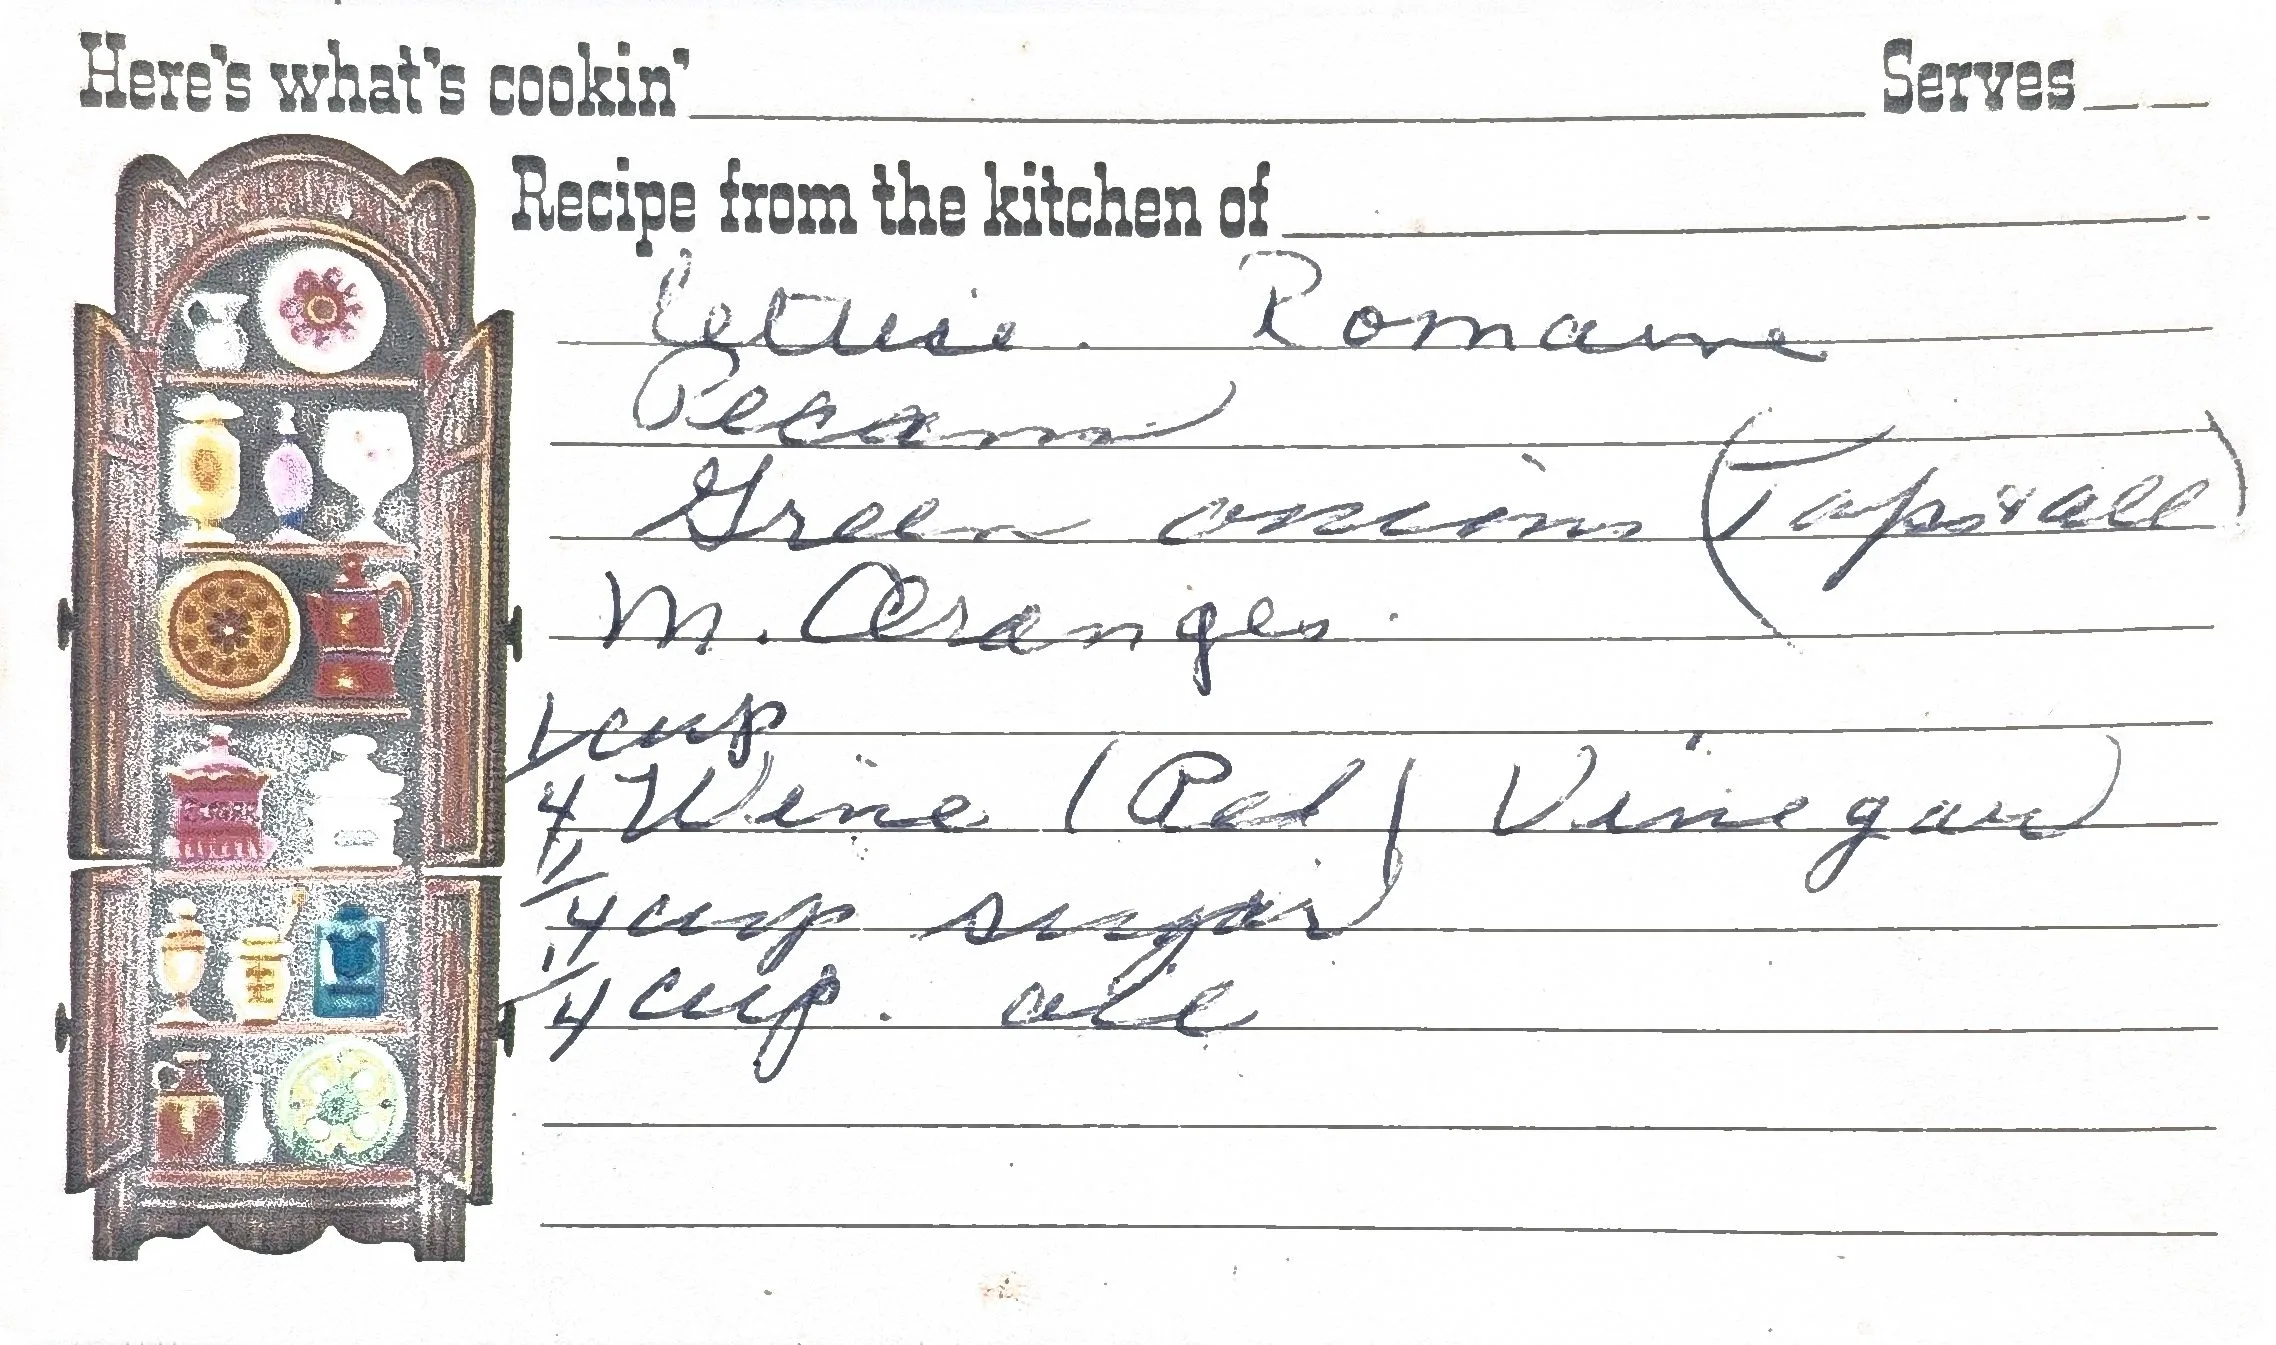 Here's what's cookin' Serves
Recipe from the kitchen of
Lettuce. Romaine
Pecans
Green onions (Tops & all)
M. Oranges.
1/4 cup
Wine (Red) Vinegar
1/4 cup sugar
1/4 cup. oil
SUGAR